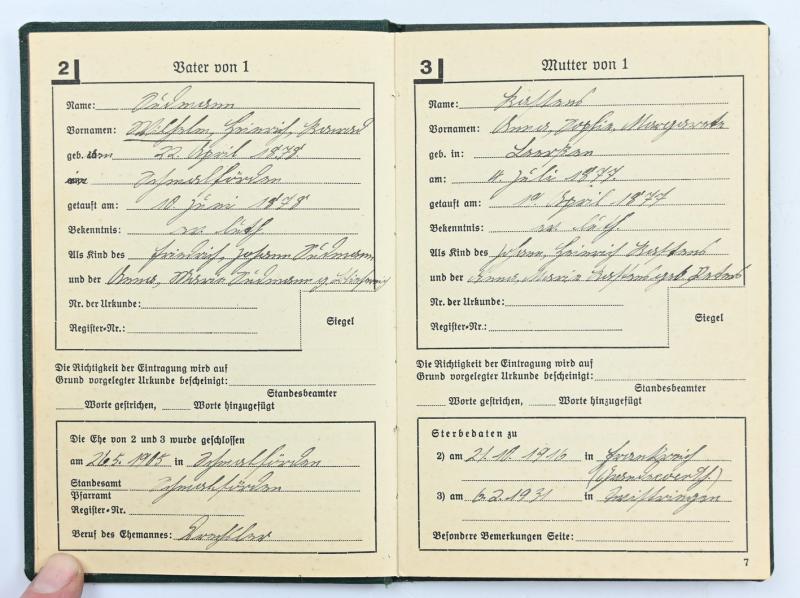 2 Vater von 1
Name: Südmann
Vornamen: Wilhelm, Heinrich, Konrad
geb. am 22. April 1878
Schmalförden
getauft am: 10. Juni 1878
Bekenntnis: ev. luth
Als Kind des Friedrich, Johann Südmann
und der Anna, Maria Südmann g.
Nr. der Urkunde:
Register-Nr.:
Siegel
Die Richtigkeit der Eintragung wird auf
Grund vorgelegter Urkunde bescheinigt:
Standesbeamter
Worte gestrichen, Worte hinzugefügt
Die Ehe von 2 und 3 wurde geschlossen
am 26.5. 1905 in Schmalförden
Standesamt Schmalförden
Pfarramt
Register-Nr.
Beruf des Ehemannes: Drechsler
3 Mutter von 1
Name: Kastens
Vornamen: Anna, Sophie, Margarete
geb. in:
am: Juli 1877
getauft am: April 1877
Bekenntnis: ev. luth.
Als Kind des Johann, Heinrich Kastens
und der Anna, Maria Kastens geb.
Nr. der Urkunde:
Register-Nr.:
Siegel
Die Richtigkeit der Eintragung wird auf
Grund vorgelegter Urkunde bescheinigt:
Standesbeamter
Worte gestrichen, Worte hinzugefügt
Sterbedaten zu
2) am 21. 10. 1916 in Frankreich
3) am 6. 2. 1931 in Twistringen
Besondere Bemerkungen Seite:
7